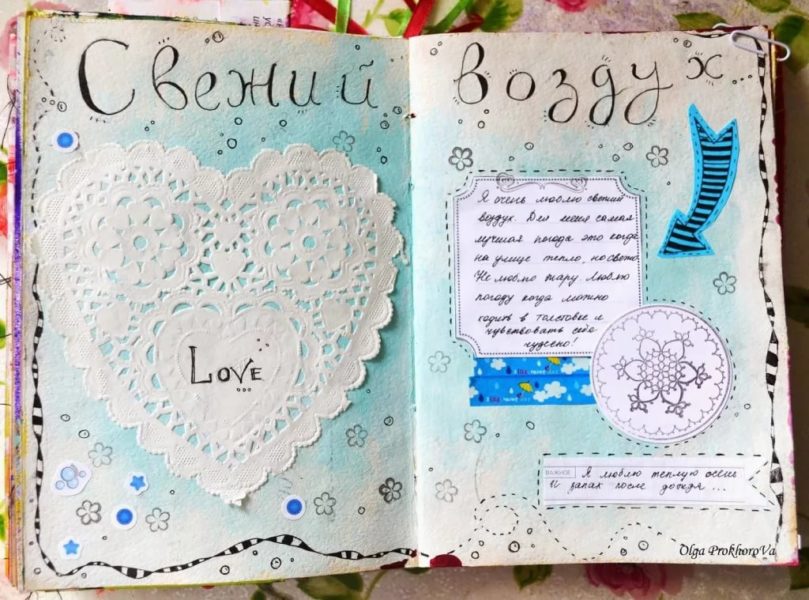 Свежий воздух
LOVE
Я очень люблю свежий
воздух. Для меня самая
лучшая погода это когда
на улице тепло, но свежо.
Не люблю жару. Люблю
погоду когда можно
ходить в толстовке и
чувствовать себя
чудесно!
ВАЖНОЕ Я люблю теплую осень
И запах после дождя...
Olga ProkhoroVa